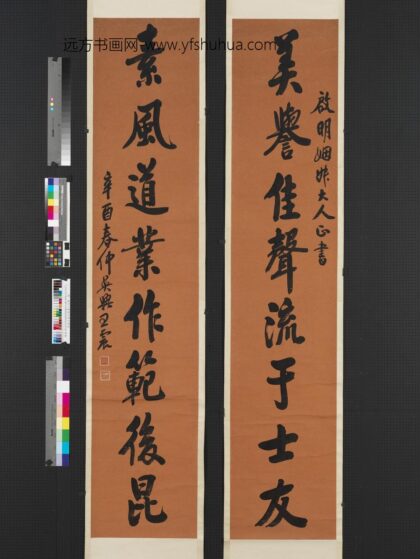 远方书画网 www.yfshuhua.com
啟明姻大人正書
美譽佳聲流于士友
素風道業作範後昆
辛酉春仲吳興王震